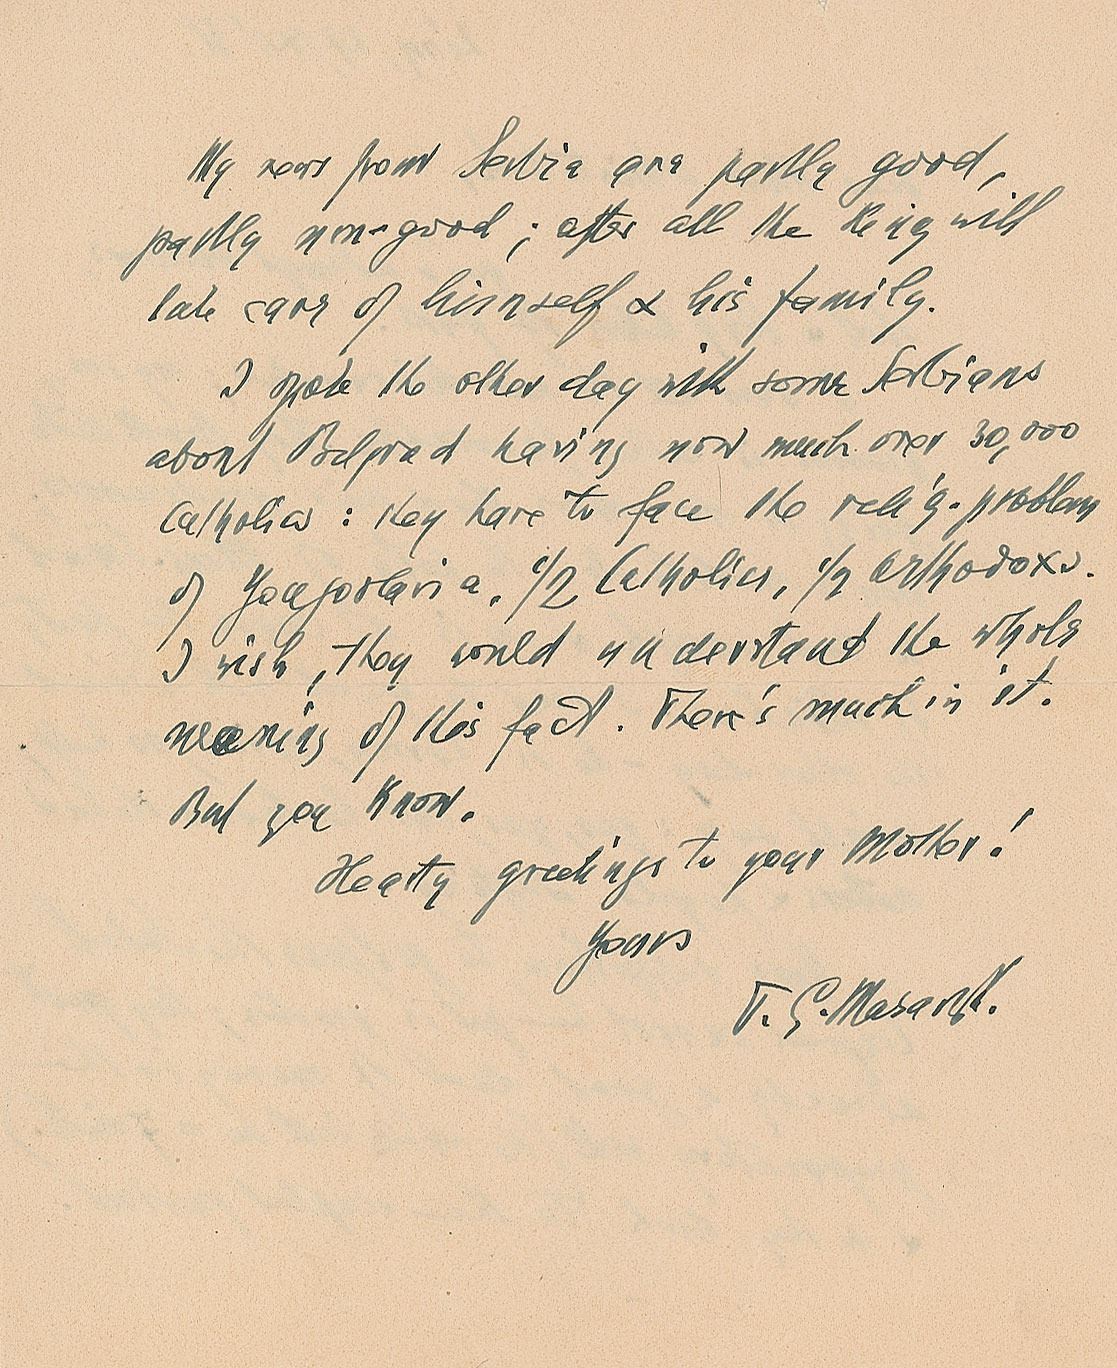 My news from Serbia are partly good,
partly non-good; after all the King will
take care of himself & his family.
I spoke the other day with some Serbians
about Belgrad having now much over 30,000
Catholics: they have to face the relig. problem
of Yougoslavia, 1/2 Catholics, 1/2 orthodoxs.
I wish, they would understand the whole
meaning of this fact. There's much in it.
But you know.
Hearty greetings to your Mother!
Yours
T. G. Masaryk.